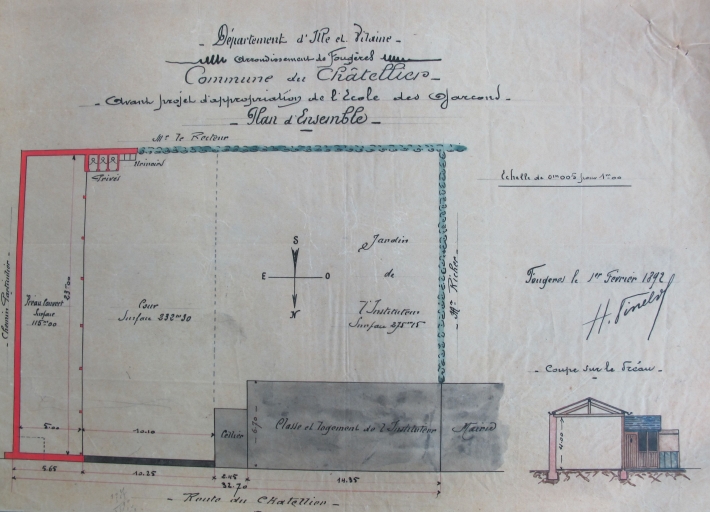 Département d'Ille et Vilaine
Arrondissement de Fougères
Commune du Châtellier
Avant projet d'appropriation de l'Ecole des Garcons
Plan d'Ensemble
Mr le Recteur
Echelle de 0m005 pour 1m00
Privés
Urinoirs
Chemin Particulier
Préau Couvert
Surface
115m00
23.00
Cour
Surface 232m30
S
E O
N
Jardin
de
l'Instituteur
Surface 275m75
Mr Richer
Fougères le 1er Fevrier 1892
Coupe sur le Préau
4.00
5.00
10.10
Cellier
6.70
Classe et logement de l'Instituteur
Mairie
5.65
10.25
2.45
14.35
32.70
Route du Chatellier